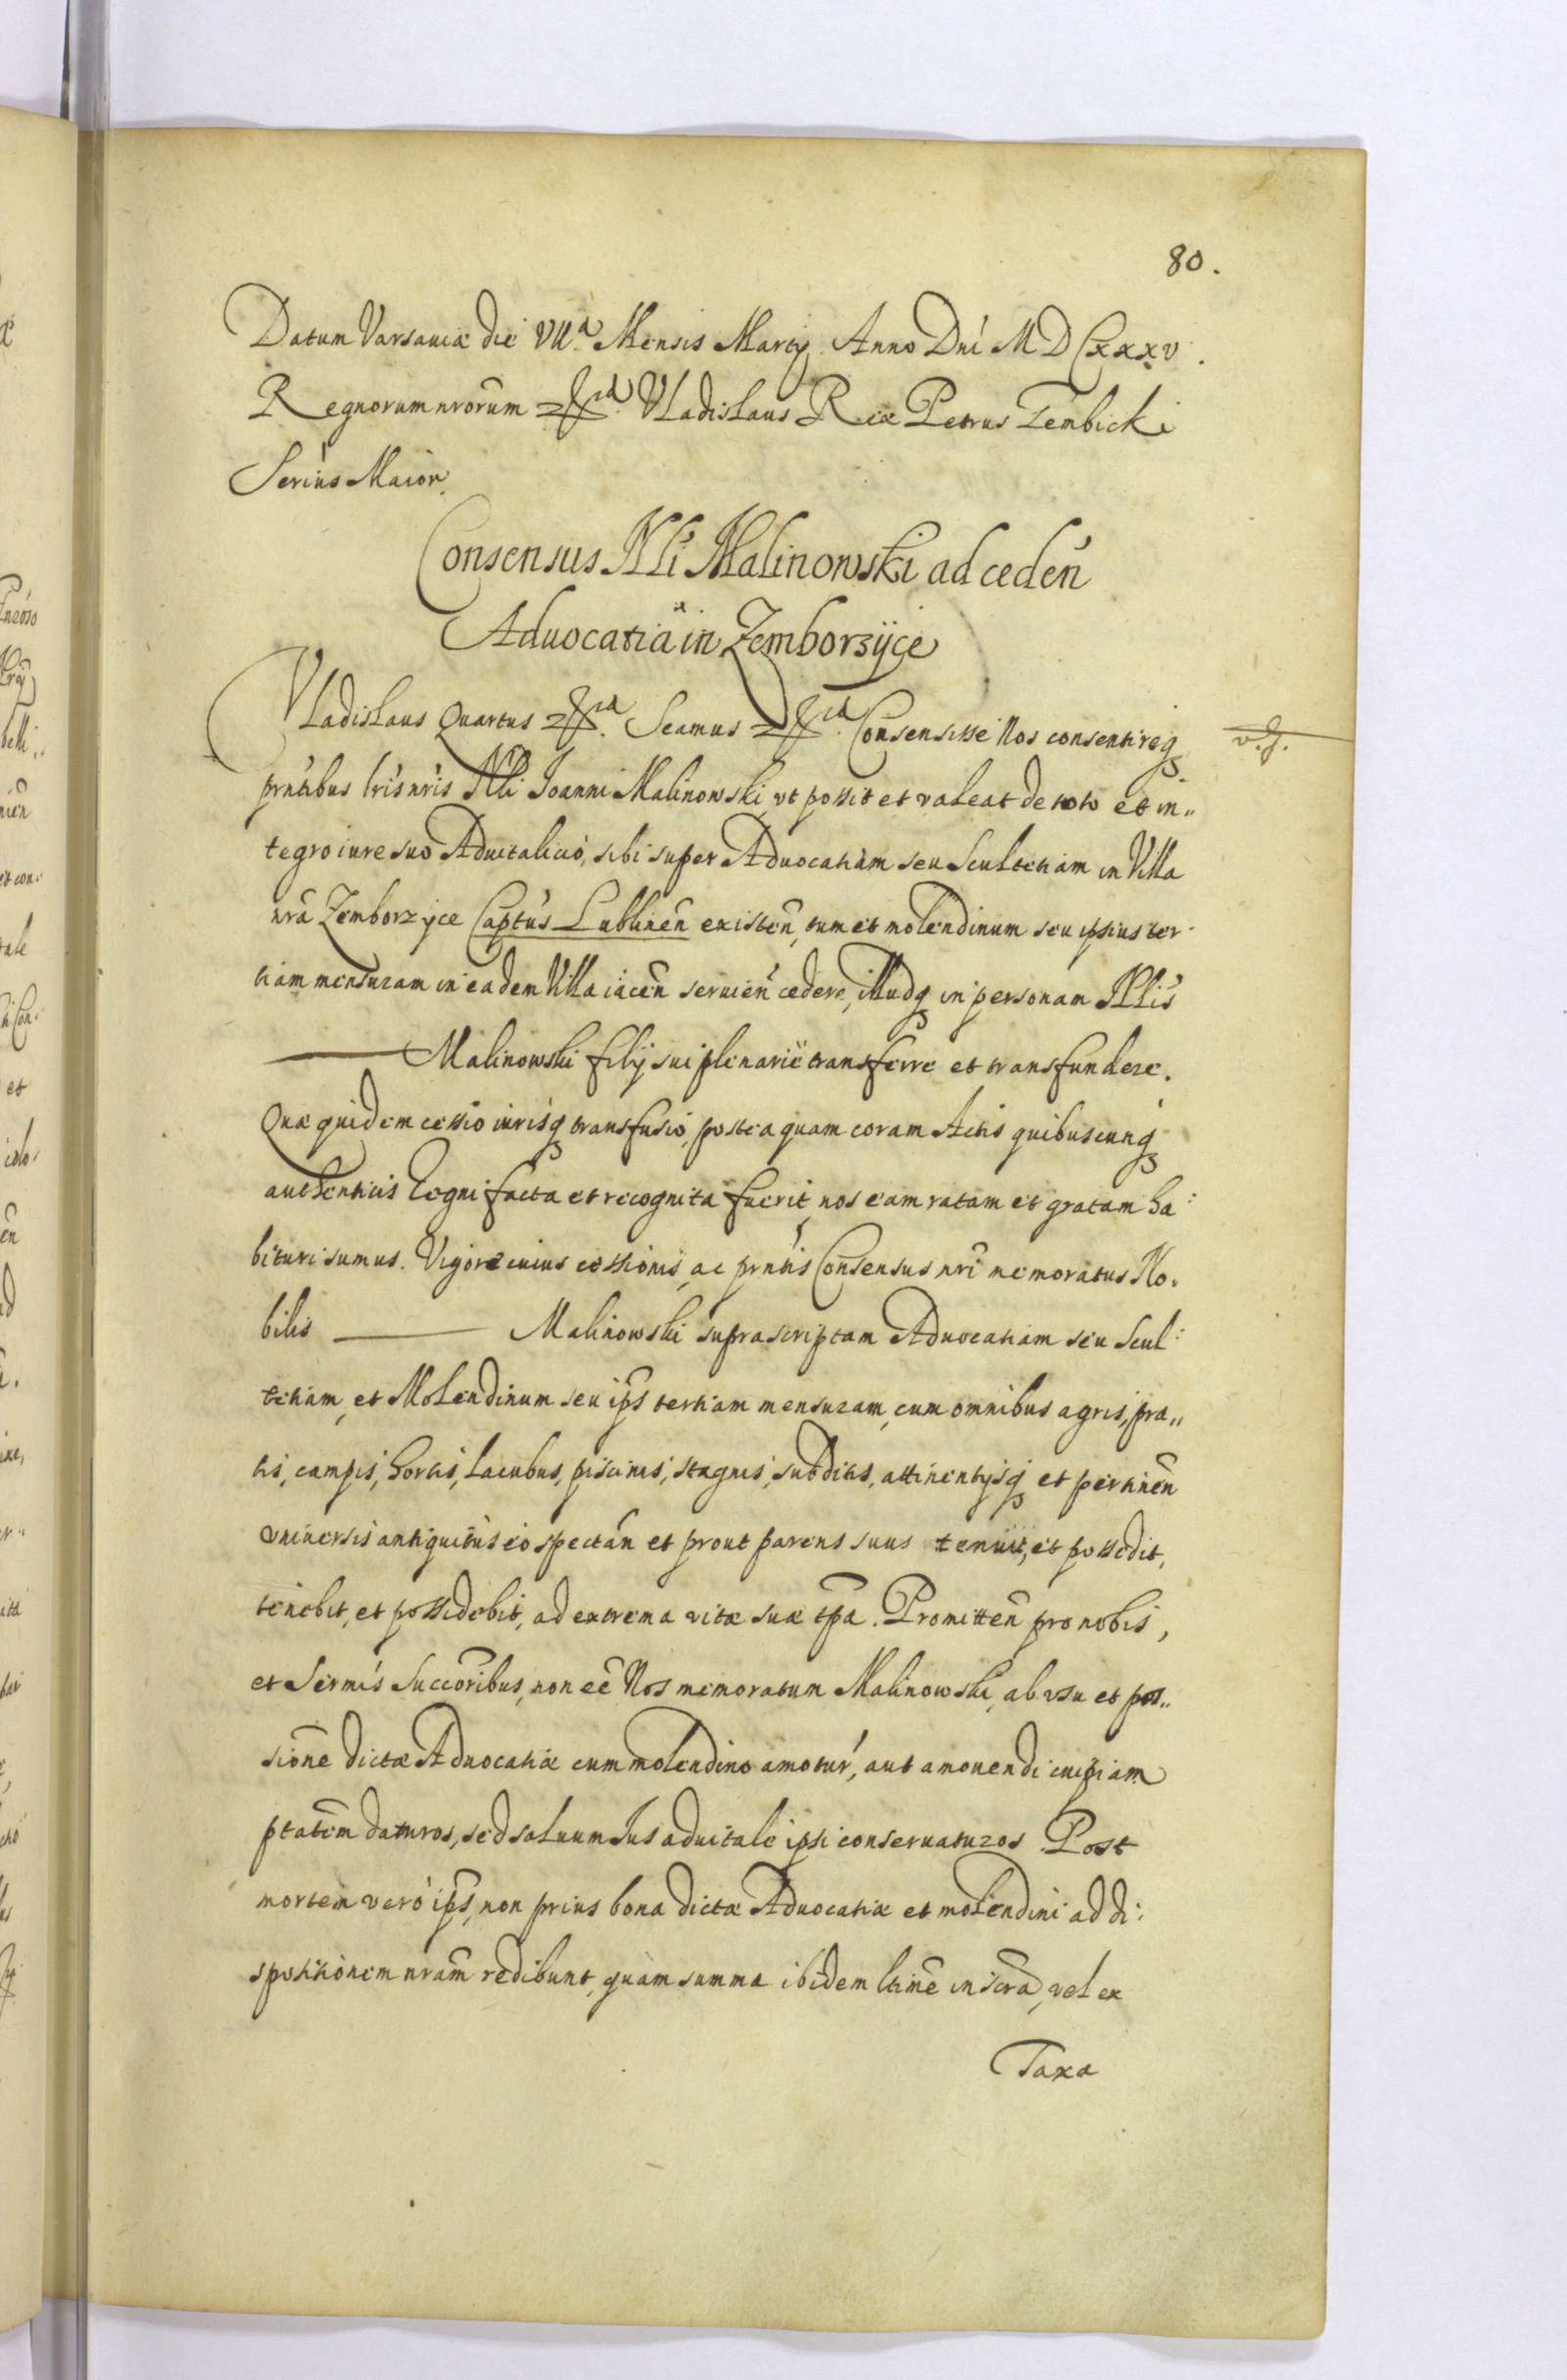 80.
Datum Varsaviæ die VII.a Mensis Martij Anno Dni M D CXXXV.
Regnorum nrorum &ca. Vladislaus Rex Petrus Gembicki
Secrius Maior.
Consensus Nli Malinowski ad ceden
Aduocatiã in Zemborzÿce
Vladislaus Quartus &ca. Seamus &ca. Consensisse Nos consentireq
prntibus lris nris Nli Ioanni Malinowski, vt possit et valeat de toto et in„
tegro iure suo Aduitalicio, sibi super Aduocatiam seu Scultetiam in Villa
nrã Zemborzÿce Captus Lublinen existen, tum et molendinum seu ipsius ter-
tiam mensuram in eadem Villa iacen seruien cedere, illudq in personam Nlis
Malinowski filij sui plenarie transferre et transfundere.
Quæ quidem cessio iurisq transfusio, postea quam coram Actis quibuscunq
authenticis Regni facta et recognita fuerit, nos eam ratam et gratam ha:
bituri sumus. Vigore cuius cessionis, ac prntis Consensus nri memoratus No.
bilis Malinowski suprascriptam Aduocatiam seu Scul:
tetiam, et Molendinum seu ips tertiam mensuram, cum omnibus agris, pra„
tis, campis, hortis, lacubus, piscinis, stagnis, subditis, attinentijsq et pertinen
vniuersis antiquitus eo spectan et prout parens suus tenuit, et possedit,
tenebit, et possidebit, ad extrema vitæ suæ tpa. Promitten pro nobis,
et Sermis Succoribus, non eẽ Nos memoratum Malinowski, ab vsu et pos„
sione dictæ Aduocatiæ cum molendino amotur, aut amouendi cuipiam
ptatem daturos, sed saluum Ius aduitale ipsi conseruaturos. Post
mortem vero ips, non prius bona dictæ Aduocatiæ et molendini ad di:
spositionem nram redibunt, quam summa ibidem ltime inscra, vel ex
Taxa